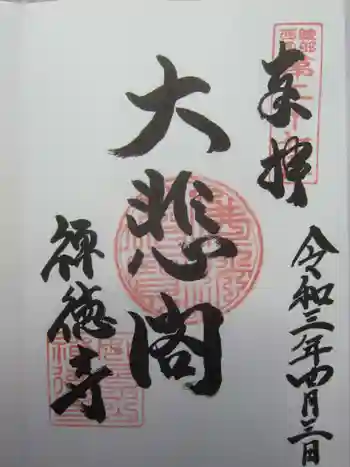 奉拝
大悲閣
禅徳寺
令和三年四月三日